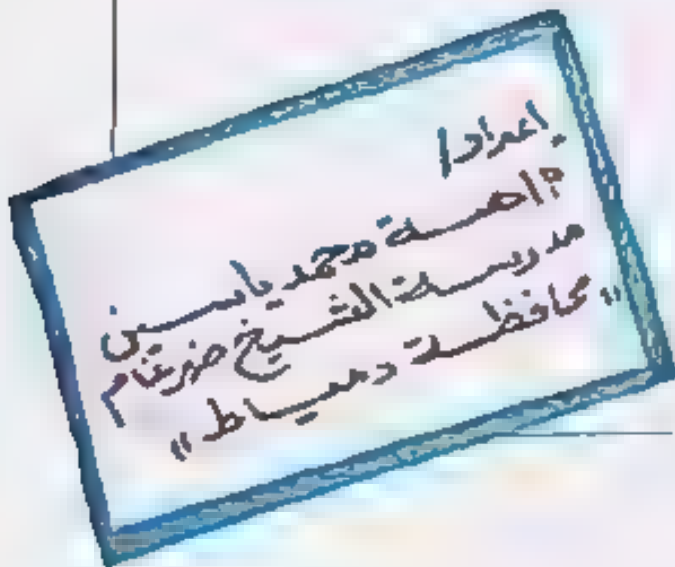 اعداد/
محمد ياسين
مدرسة الشيخ ضرغام
"محافظة دمياط"